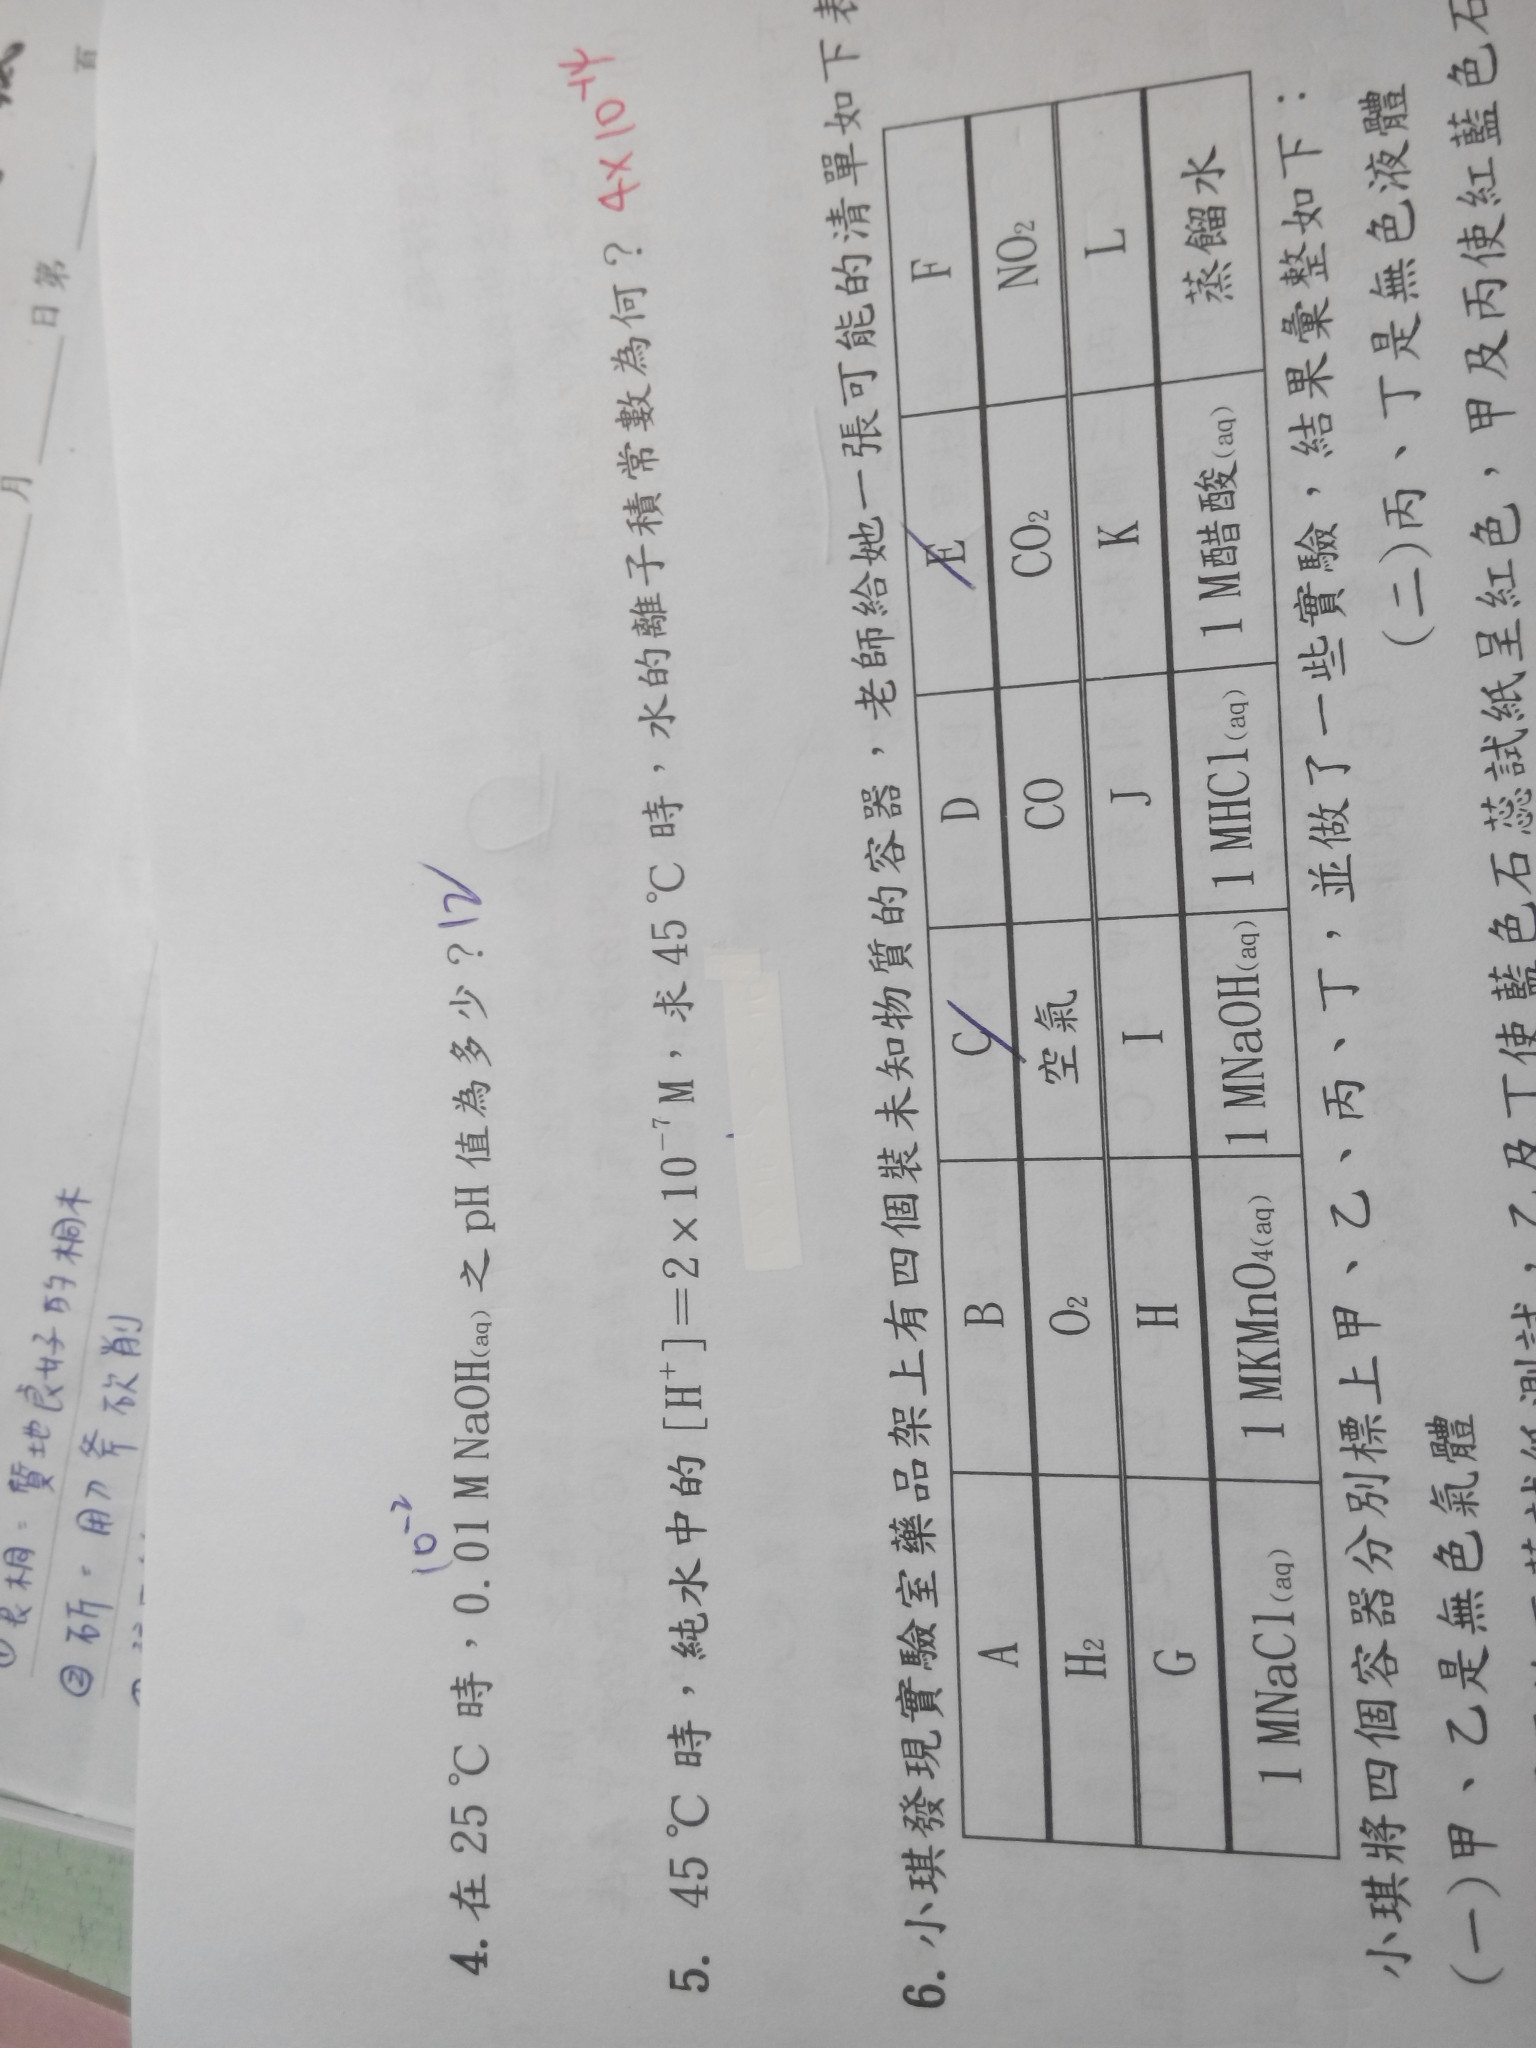 月
日第
頁
質地良好的桐木
②斫:用刀斧砍削
10⁻²
4. 在 25 ℃ 時,0.01 M NaOH(aq) 之 pH 值為多少?12
4×10⁻¹⁴
5. 45 ℃ 時,純水中的 [H⁺]=2×10⁻⁷ M,求 45 ℃ 時,水的離子積常數為何?
6. 小琪發現實驗室藥品架上有四個裝未知物質的容器,老師給她一張可能的清單如下表
A B C D E F
H₂ O₂ 空氣 CO CO₂ NO₂
G H I J K L
1 MNaCl(aq) 1 MKMnO₄(aq) 1 MNaOH(aq) 1 MHCl(aq) 1 M醋酸(aq) 蒸餾水
小琪將四個容器分別標上甲、乙、丙、丁,並做了一些實驗,結果彙整如下:
(一)甲、乙是無色氣體 (二)丙、丁是無色液體
乙及丁使藍色石蕊試紙呈紅色,甲及丙使紅藍色石